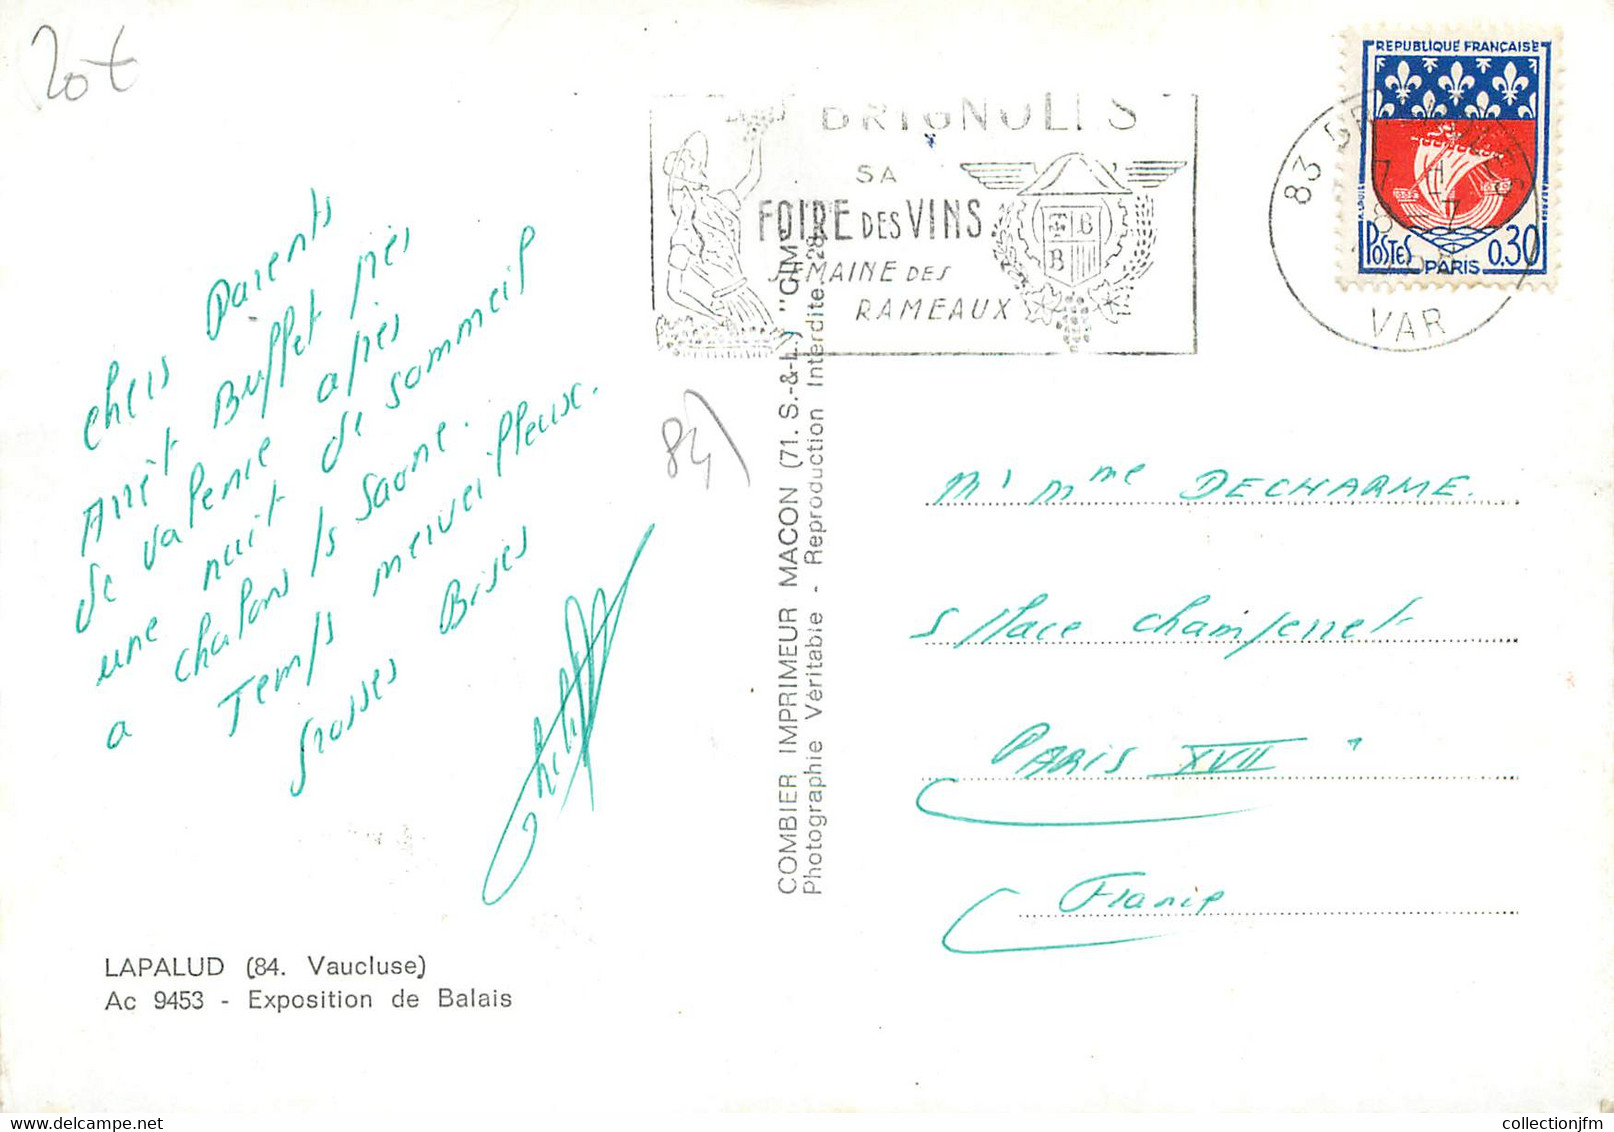 20€
BRIGNOLES
SA
FOIRE DES VINS
SEMAINE DES
RAMEAUX
REPUBLIQUE FRANÇAISE
POSTES
PARIS
0,30
83 BRIGNOLES
VAR
chers Parents
Arrêt Buffet près
de valence après
une nuit de sommeil
a chalons ls Saone.
Temps merveilleux.
Grosses Bises
84
COMBIER IMPRIMEUR MACON (71. S.-&-L.) "CIM"
Photographie Véritable - Reproduction Interdite.
Mr Mme DECHARME.
5 place champerret
PARIS XVII
France
LAPALUD (84. Vaucluse)
Ac 9453 - Exposition de Balais
collectionjfm